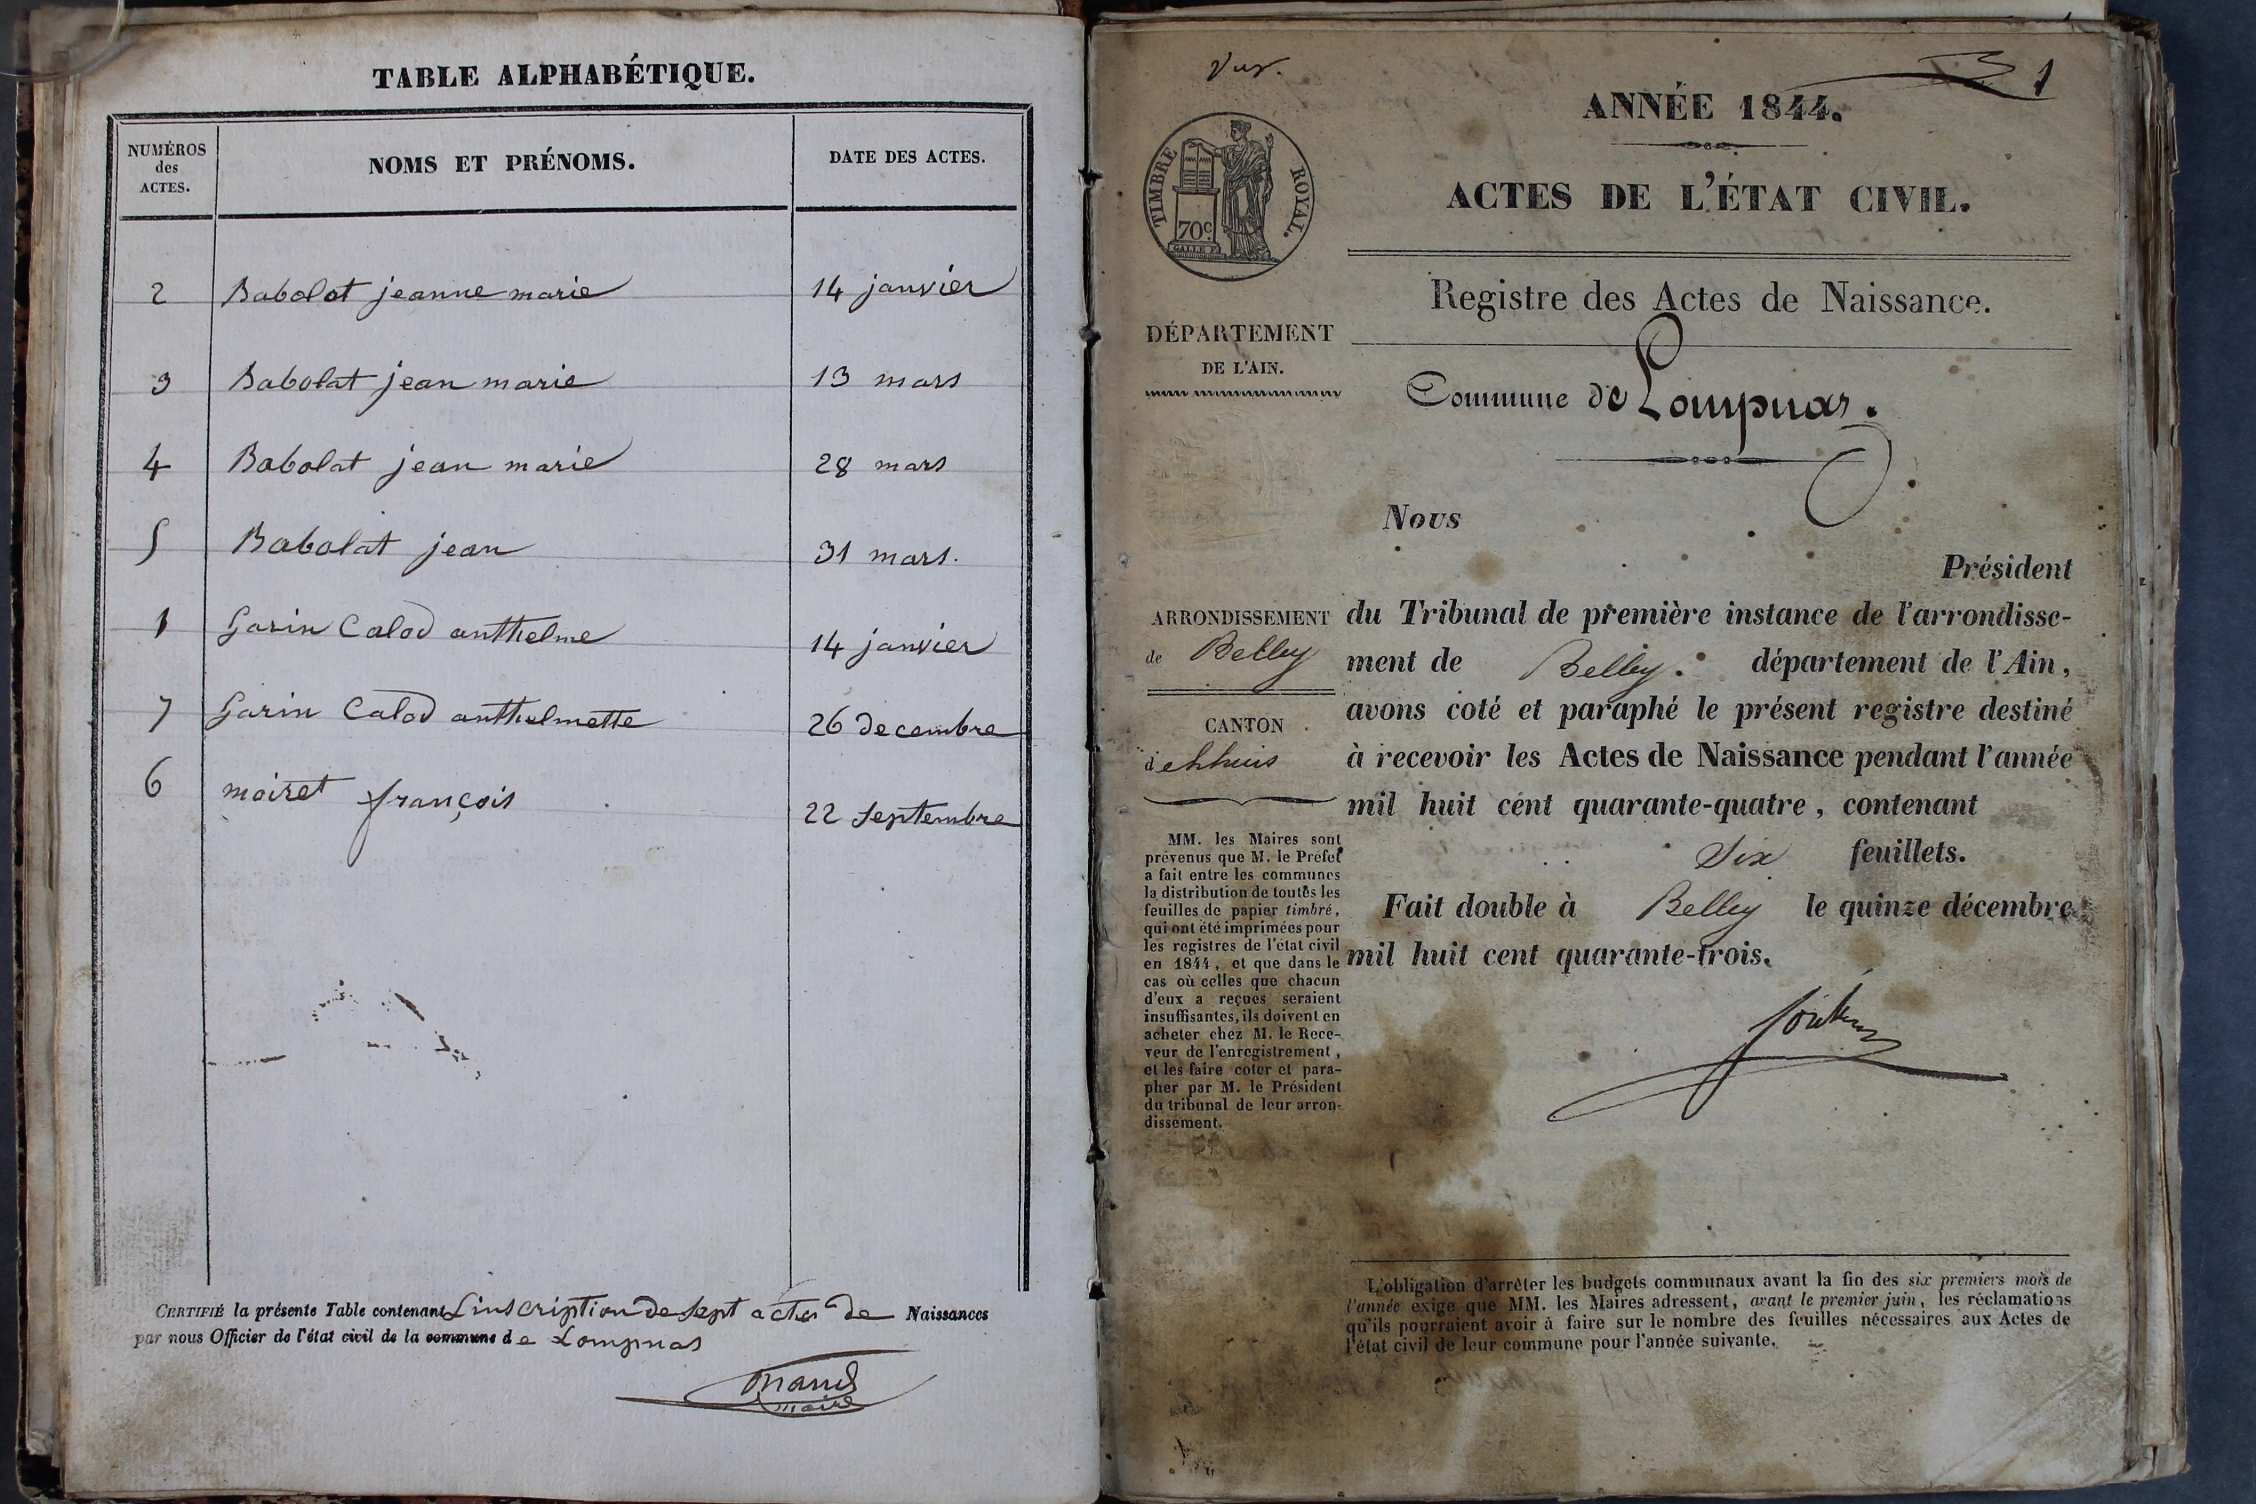 TABLE ALPHABÉTIQUE.
NUMÉROS
des
ACTES.
NOMS ET PRÉNOMS.
DATE DES ACTES.
2 Babolat jeanne marie 14 janvier
3 Babolat jean marie 13 mars
4 Babolat jean marie 28 mars
5 Babolat jean 31 mars.
1 Garin Calod anthelme 14 janvier
7 Garin Calod anthelmette 26 decembre
6 moiret françois 22 septembre
CERTIFIÉ la présente Table contenant L'inscription de sept actes de Naissances
par nous Officier de l'état civil de la commune de Lompnas
maire
1
ANNÉE 1844.
TIMBRE ROYAL.
70c.
ACTES DE L'ÉTAT CIVIL.
Registre des Actes de Naissance.
DÉPARTEMENT
DE L'AIN.
Commune de Lompnas.
Nous
Président
ARRONDISSEMENT
de Belley
CANTON
MM. les Maires sont
prévenus que M. le Préfet
a fait entre les communes
la distribution de toutes les
feuilles de papier timbré,
qui ont été imprimées pour
les registres de l'état civil
en 1844, et que dans le
cas où celles que chacun
d'eux a reçues seraient
insuffisantes, ils doivent en
acheter chez M. le Rece-
veur de l'enregistrement,
et les faire coter et para-
pher par M. le Président
du tribunal de leur arron-
dissement.
du Tribunal de première instance de l'arrondisse-
ment de Belley. département de l'Ain,
avons coté et paraphé le présent registre destiné
à recevoir les Actes de Naissance pendant l'année
mil huit cent quarante-quatre, contenant
Six feuillets.
Fait double à Belley le quinze décembre
mil huit cent quarante-trois.
L'obligation d'arrêter les budgets communaux avant la fin des six premiers mois de
l'année exige que MM. les Maires adressent, avant le premier juin, les réclamations
qu'ils pourraient avoir à faire sur le nombre des feuilles nécessaires aux Actes de
l'état civil de leur commune pour l'année suivante.